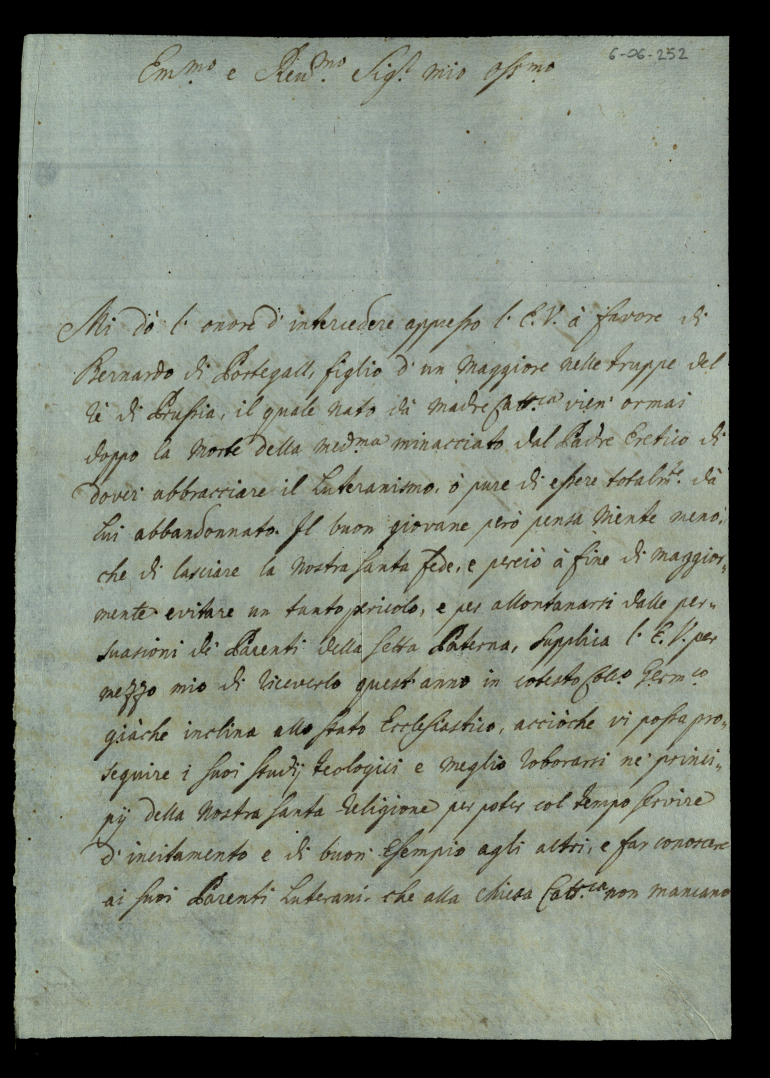 6-06-252
Em.mo e Reu.mo Sig.r mio oss.mo
Mi dò l'onore d'intercedere appresso l'E.V. à favore di
Bernardo di Portegall, figlio d'un Maggiore nelle truppe del
rè di Prussia, il quale nato dà Madre Catt.ca vien' ormai
doppo la Morte della med.ma minacciato dal Padre Eretico di
dover abbracciare il Luteranismo, ò pure di essere totalm.te dà
lui abbandonnato. Il buon giovane però pensa Niente meno,
che di lasciare la Nostra Santa fede, e perciò à fine di maggior-
mente evitare un tanto pericolo, e per allontanarsi dalle per-
suasioni de' Parenti della setta Paterna, supplica l'E.V. per
mezzo mio di riceverlo quest'anno in cotesto Coll.o Germ.co
giàche inclina allo stato Ecclesiastico, acciòche vi possa pro-
seguire i suoi studij teologici e meglio roborarsi ne' princi-
pij della Nostra Santa religione per poter col tempo servire
d'incitamento e di buon' Esempio agli altri, e far conoscere
ai suoi Parenti Luterani, che alla chiesa Catt.ca non mancano